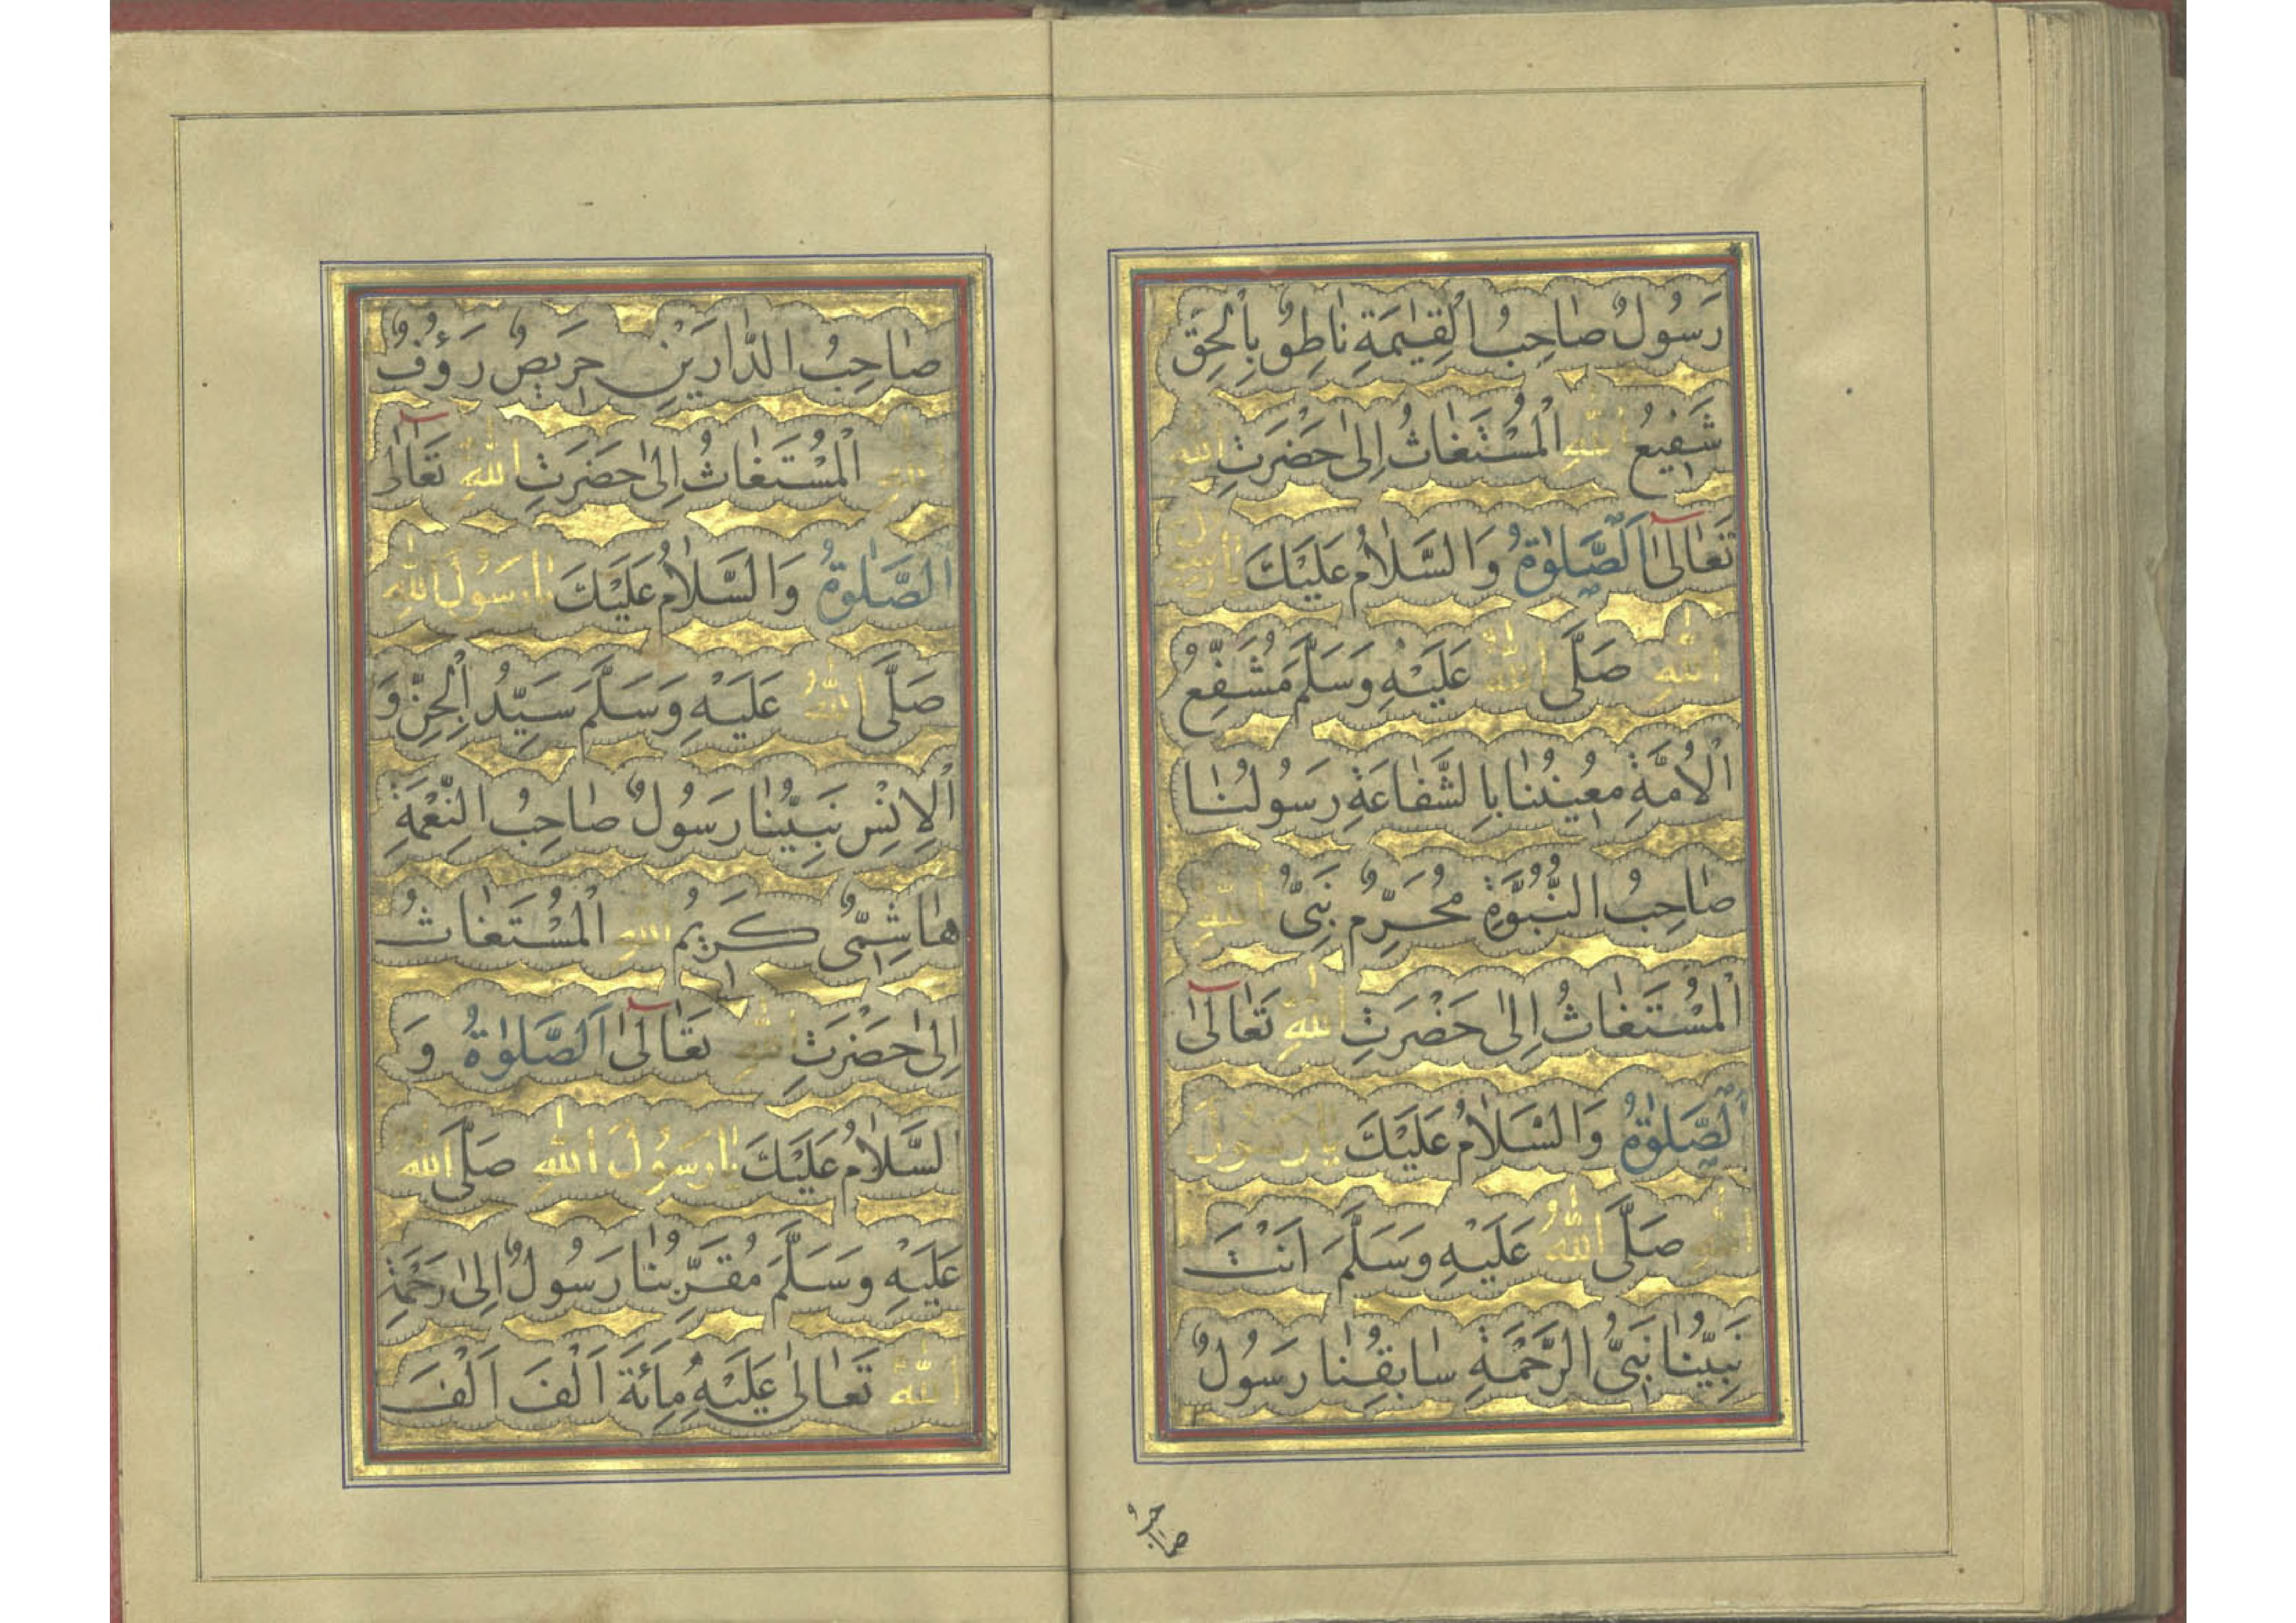 رَسُولٌ صَاحِبُ الْقِيٰمَةِ نَاطِقٌ بِالْحَقِّ
شَفِيعُ اللّٰهِ اَلْمُسْتَغَاثُ اِلٰى حَضْرَتِ اللّٰهِ
تَعَالٰى اَلصَّلٰوةُ وَالسَّلَامُ عَلَيْكَ يَارَسُولَ
اللّٰهِ صَلَّى اللّٰهُ عَلَيْهِ وَسَلَّمَ مُشَفِّعُ
الْاُمَّةِ مُعِيْنُنَا بِالشَّفَاعَةِ رَسُولُنَا
صَاحِبُ النُّبُوَّةِ مُحَرِّمٌ نَبِىُّ اللّٰهِ
اَلْمُسْتَغَاثُ اِلٰى حَضْرَتِ اللّٰهِ تَعَالٰى
اَلصَّلٰوةُ وَالسَّلَامُ عَلَيْكَ يَارَسُولَ
اللّٰهِ صَلَّى اللّٰهُ عَلَيْهِ وَسَلَّمَ اَنْتَ
نَبِيُّنَا نَبِىُّ الرَّحْمَةِ سَابِقُنَا رَسُولٌ
صَاحِبُ
صَاحِبُ الدَّارَيْنِ حَرِيصٌ رَؤُفٌ
اللّٰهِ اَلْمُسْتَغَاثُ اِلٰى حَضْرَتِ اللّٰهِ تَعَالٰى
اَلصَّلٰوةُ وَالسَّلَامُ عَلَيْكَ يَارَسُولَ اللّٰهِ
صَلَّى اللّٰهُ عَلَيْهِ وَسَلَّمَ سَيِّدُ الْجِنِّ وَ
الْاِنْسِ نَبِيُّنَا رَسُولٌ صَاحِبُ النِّعْمَةِ
هَاشِمِىٌّ كَرِيْمُ اللّٰهِ اَلْمُسْتَغَاثُ
اِلٰى حَضْرَتِ اللّٰهِ تَعَالٰى اَلصَّلٰوةُ وَ
السَّلَامُ عَلَيْكَ يَارَسُولَ اللّٰهِ صَلَّى اللّٰهُ
عَلَيْهِ وَسَلَّمَ مُقَرِّبُنَا رَسُولٌ اِلٰى رَحْمَةِ
اللّٰهِ تَعَالٰى عَلَيْهِ مِائَةَ اَلْفَ اَلْفَ